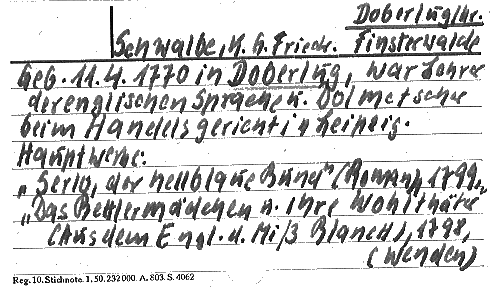 Doberlug/Kr.
Schwalbe, K. G. Friedr. Finsterwalde
Geb. 11.4.1770 in Doberlug, war Lehrer
der englischen Sprache u. Dolmetscher
beim Handelsgericht in Leipzig.
Hauptwerke:
„Serlo, der hellblaue Bund" (Roman), 1799,
„Das Bettlermädchen u. ihre Wohlthäter
(Aus dem Engl. d. Miß Blanch), 1798,
(Wenden)
Reg. 10. Stichnote. 1. 50. 232000. A. 803. S. 4062